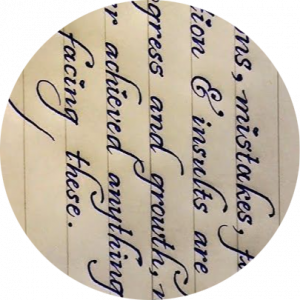 ns, mistakes, f
ion & insults are
gress and growth,
r achieved anything
facing these.